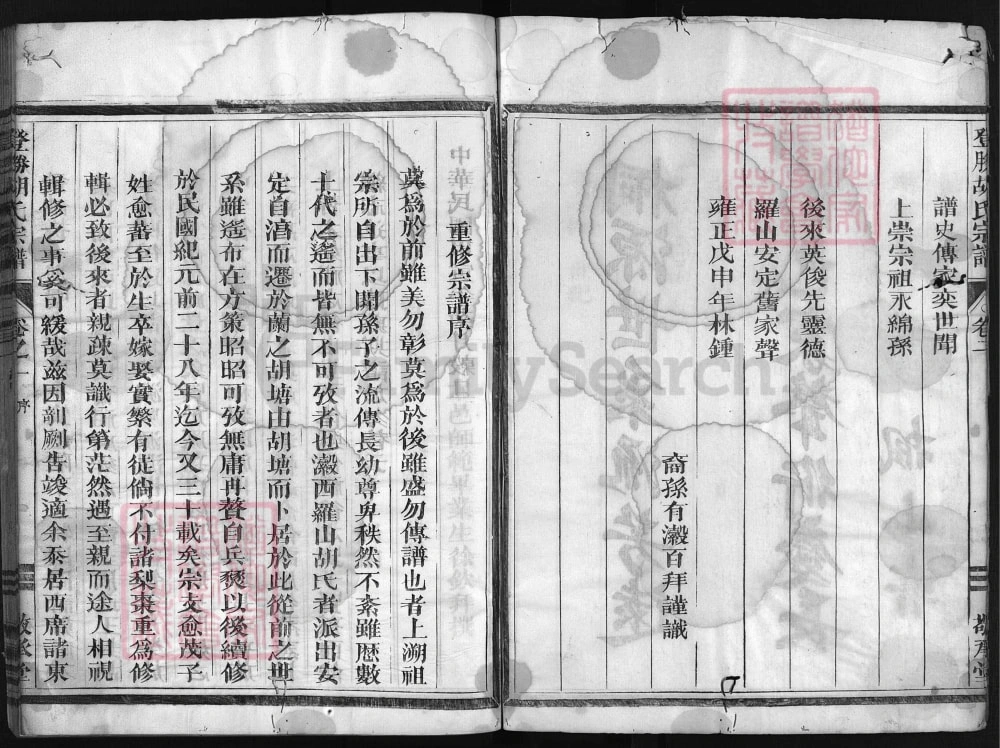 登勝胡氏宗譜
卷一
敬承堂
譜史傳家奕世聞
上崇宗祖永綿孫
後來英俊先靈德
羅山安定舊家聲
雍正戊申年林鍾
裔孫有瀫百拜謹識
重修宗譜序
莫為於前雖美勿彰莫為於後雖盛勿傳譜也者上溯祖
宗所自出下關孫子之流傳長幼尊卑秩然不紊雖歷數
十代之遙而皆無不可攷者也瀫西羅山胡氏者派出安
定自湻而遷於蘭之胡塘由胡塘而卜居於此從前之世
系雖遙布在方策昭昭可攷無庸冉贅自兵燹以後續修
於民國紀元前二十八年迄今又三十載矣宗支愈茂子
姓愈蕃至於生卒嫁娶實繁有徒倘不付諸梨棗重為修
輯必致後來者親疎莫識行第茫然遇至親而途人相視
輯修之事妥可緩哉茲因剞劂告竣適余忝居西席諸東
登勝胡氏宗譜
卷之一
序
敬承堂
FamilySearch